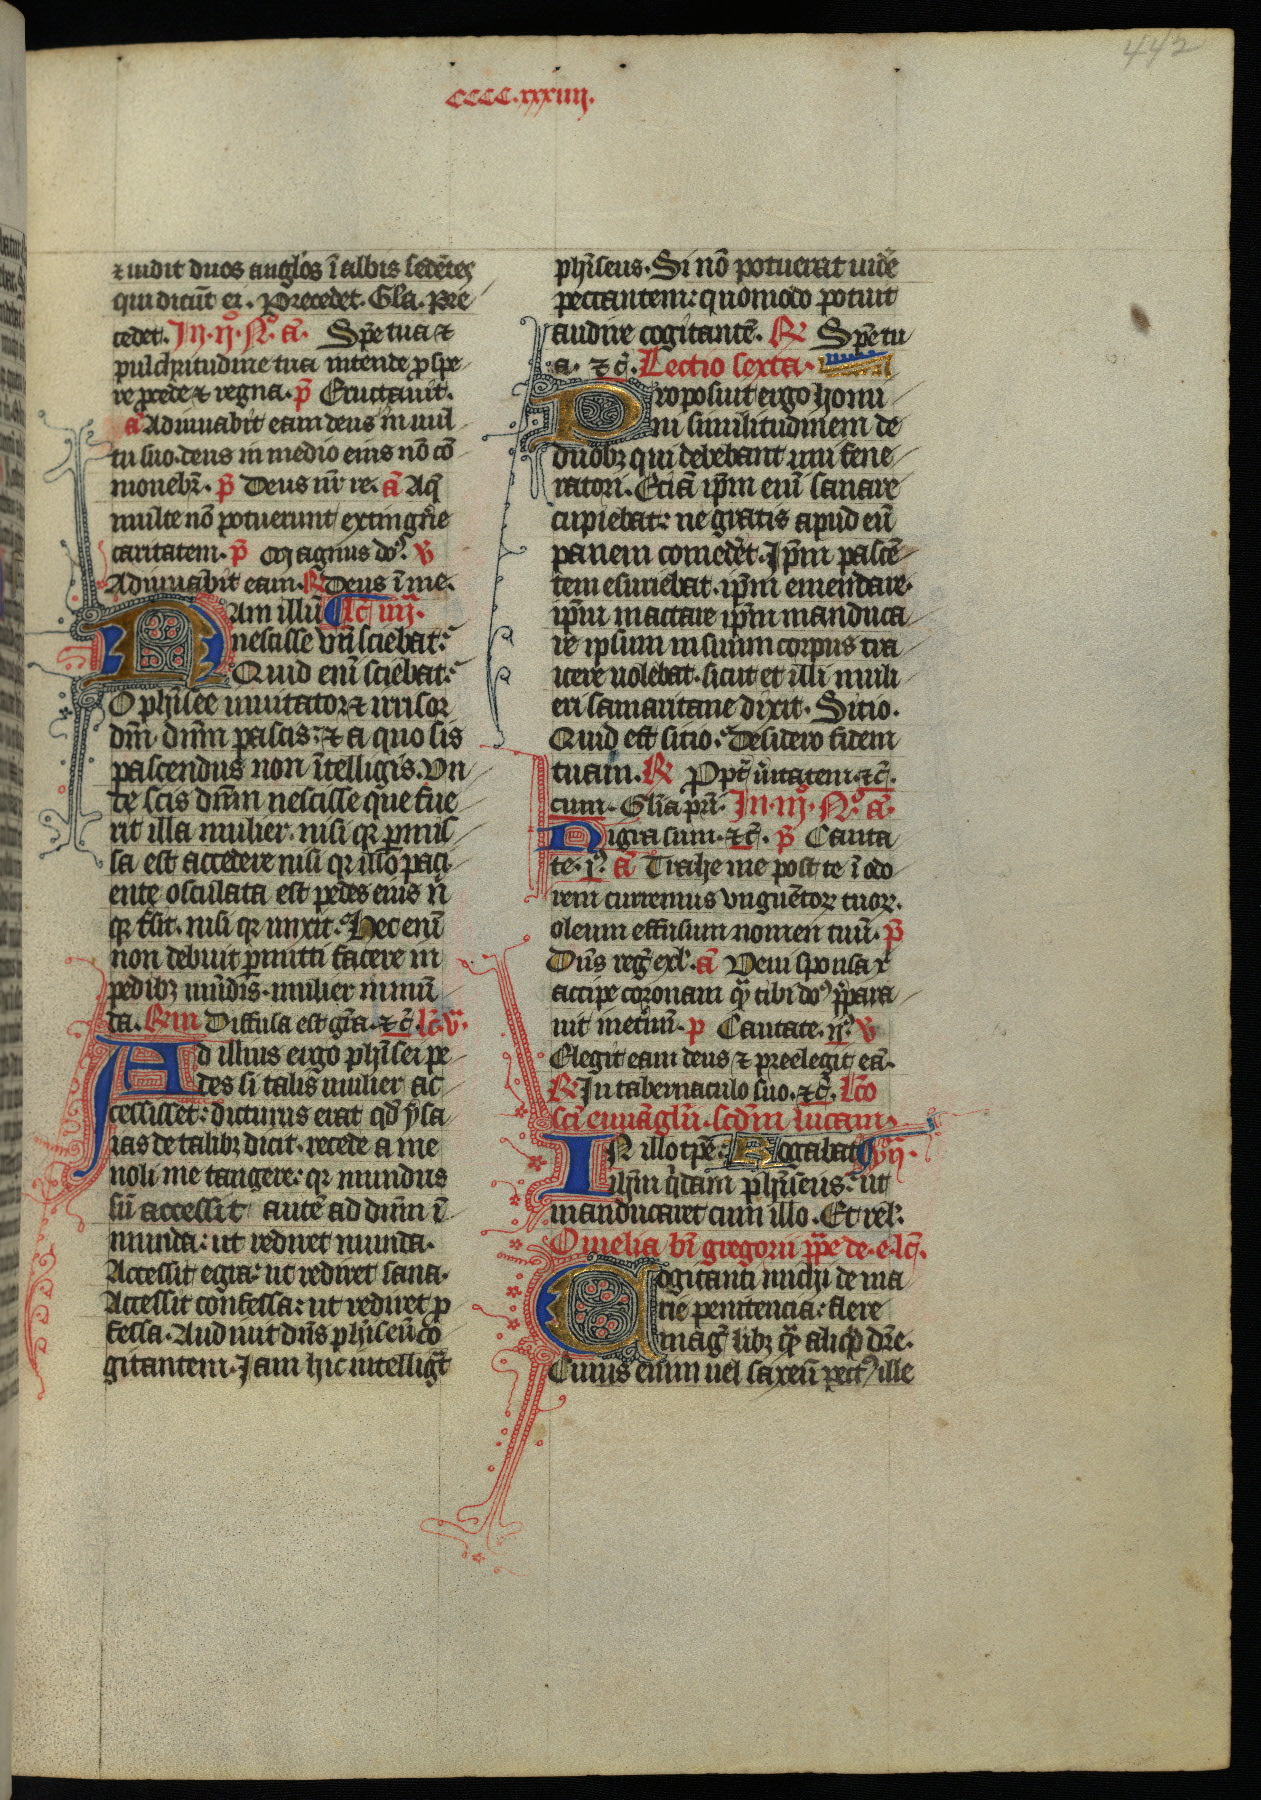 442
cccc.xxxiiij.
⁊ uidit duos anglos ī albis sedētes
qui dicūt ei. Precedet. Gl̄a. Pre
cedet. In .ij°. N°. a͞. Spē tua ⁊
pulchritudine tua intende ꝓspe
re ꝓcede ⁊ regna. p̄ Eructauit.
a͞ Adiuuabit eam deus in uul
tu suo. deus in medio eius nō cō
mouebr̄. p̄ Deus nr̄ re. a͞ Aq̄
multe nō potuerunt extinguͤe
caritatem. p̄ Magnus do⁹. v̄
Adiuuabit eam. R Deus ī me.
Nam illū lc̄ iiij.
nescisse vn̄ sciebat.
Quid enī sciebat.
O phīsee inuitator ⁊ irrisor
dn̄i dn̄m pascis: ⁊ a quo sis
pascendus non ītelligis. Vn
de scis dn̄m nescisse que fue
rit illa mulier. nisi qꝛ ꝑmis
sa est accedere nisi qꝛ illo paci
ente osculata est pedes eius n̄
qꝛ t̄sit. nisi qꝛ unxit. Hec enī
non debuit ꝑmitti facere in
pedibꝫ mūdis. mulier inmū
da. Rm Diffusa est gr̄a. ⁊c̄. lc̄. v͞.
Ad illius ergo phīsei pe
des si talis mulier ac
cessisset: dicturus erat qd̄ ysa
ias de talibꝫ dicit. recede a me
noli me tangere: qꝛ mundus
sū accessit autē ad dn̄m ī
munda: ut rediret munda.
Accessit egra: ut rediret sana.
Accessit confessa: ut rediret ꝓ
fessa. Audiuit dn̄s phīseū co
gitantem. Iam hic intelligᷓt
phīseus. Si nō potuerat uidē
peccantem: quomodo potuit
audire cogitantē. R Spē tu
a. ⁊c̄. Lectio sexta.
Proposuit ergo homi
ni similitudinem de
duobꝫ qui debebant uni fene
ratori. Etiā ip̄m enī sanare
cupiebat: ne gratis apud eū
panem comedēt. Ip̄m pascē
tem esuriebat. ip̄m emendare.
ip̄m mactare ip̄m manduca
re ipsum in suum corpus tra
icere uolebat. sicut et illi muli
eri samaritane dixit. Sitio.
Quid est sitio. Desidero fidem
tuam. R Ppt̄ ūitatem. ⁊c̄.
cum. Gl̄ia pri̅. In .iij°. N°. a͞.
Nigra sum. ⁊c̄. p̄ Canta
te. j°. a͞ Trahe me post te ī odo
rem curremus vnguētoꝝ tuoꝝ.
oleum effusum nomen tuū. p̄
Dn̄s reg̃ exl̄. a͞ Veni sponsa x̄
accipe coronam qᷓ tibi do⁹ p̄para
uit inet̄nū. p Cantate. ij°. v̄
Elegit eam deus ⁊ preelegit eā.
R In tabernaculo suo. ⁊c̄. Lc̄o
sc̄i euuāglīi. scd̄m lucam.
IN illo tp̄e: Rogabat vij.
ih̄m q̇dam phīseus: ut
manducaret cum illo. Et rel̄.
Omelia bī gregorii pp̄e de e. lc̄.
Cogitanti michi de ma
rie penitencia: flere
mag̃ libꝫ qᷓ aliqͥd dr̄e.
Cuius enim uel saxeū pect⁹ ille